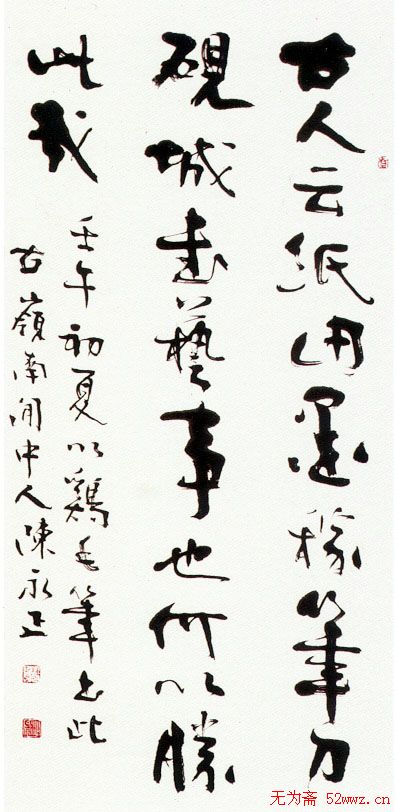 古人云紙田墨稼筆刀
硯城書藝事也何以勝
此哉
壬午初夏以鷄毛筆書此
古嶺南閒中人陳永正
无为斋 52wwz.cn